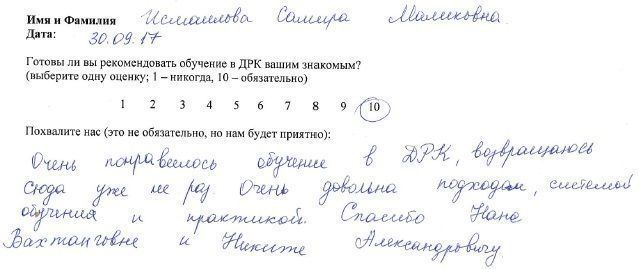 Имя и Фамилия Исмаилова Самира Маликовна
Дата: 30.09.17
Готовы ли вы рекомендовать обучение в ДРК вашим знакомым?
(выберите одну оценку; 1 – никогда, 10 – обязательно)
1 2 3 4 5 6 7 8 9 10
Похвалите нас (это не обязательно, но нам будет приятно):
Очень понравилось обучение в ДРК, возвращаюсь
сюда уже не раз. Очень довольна подходом, системой
обучения и практикой. Спасибо Нане
Вахтанговне и Никите Александровичу.